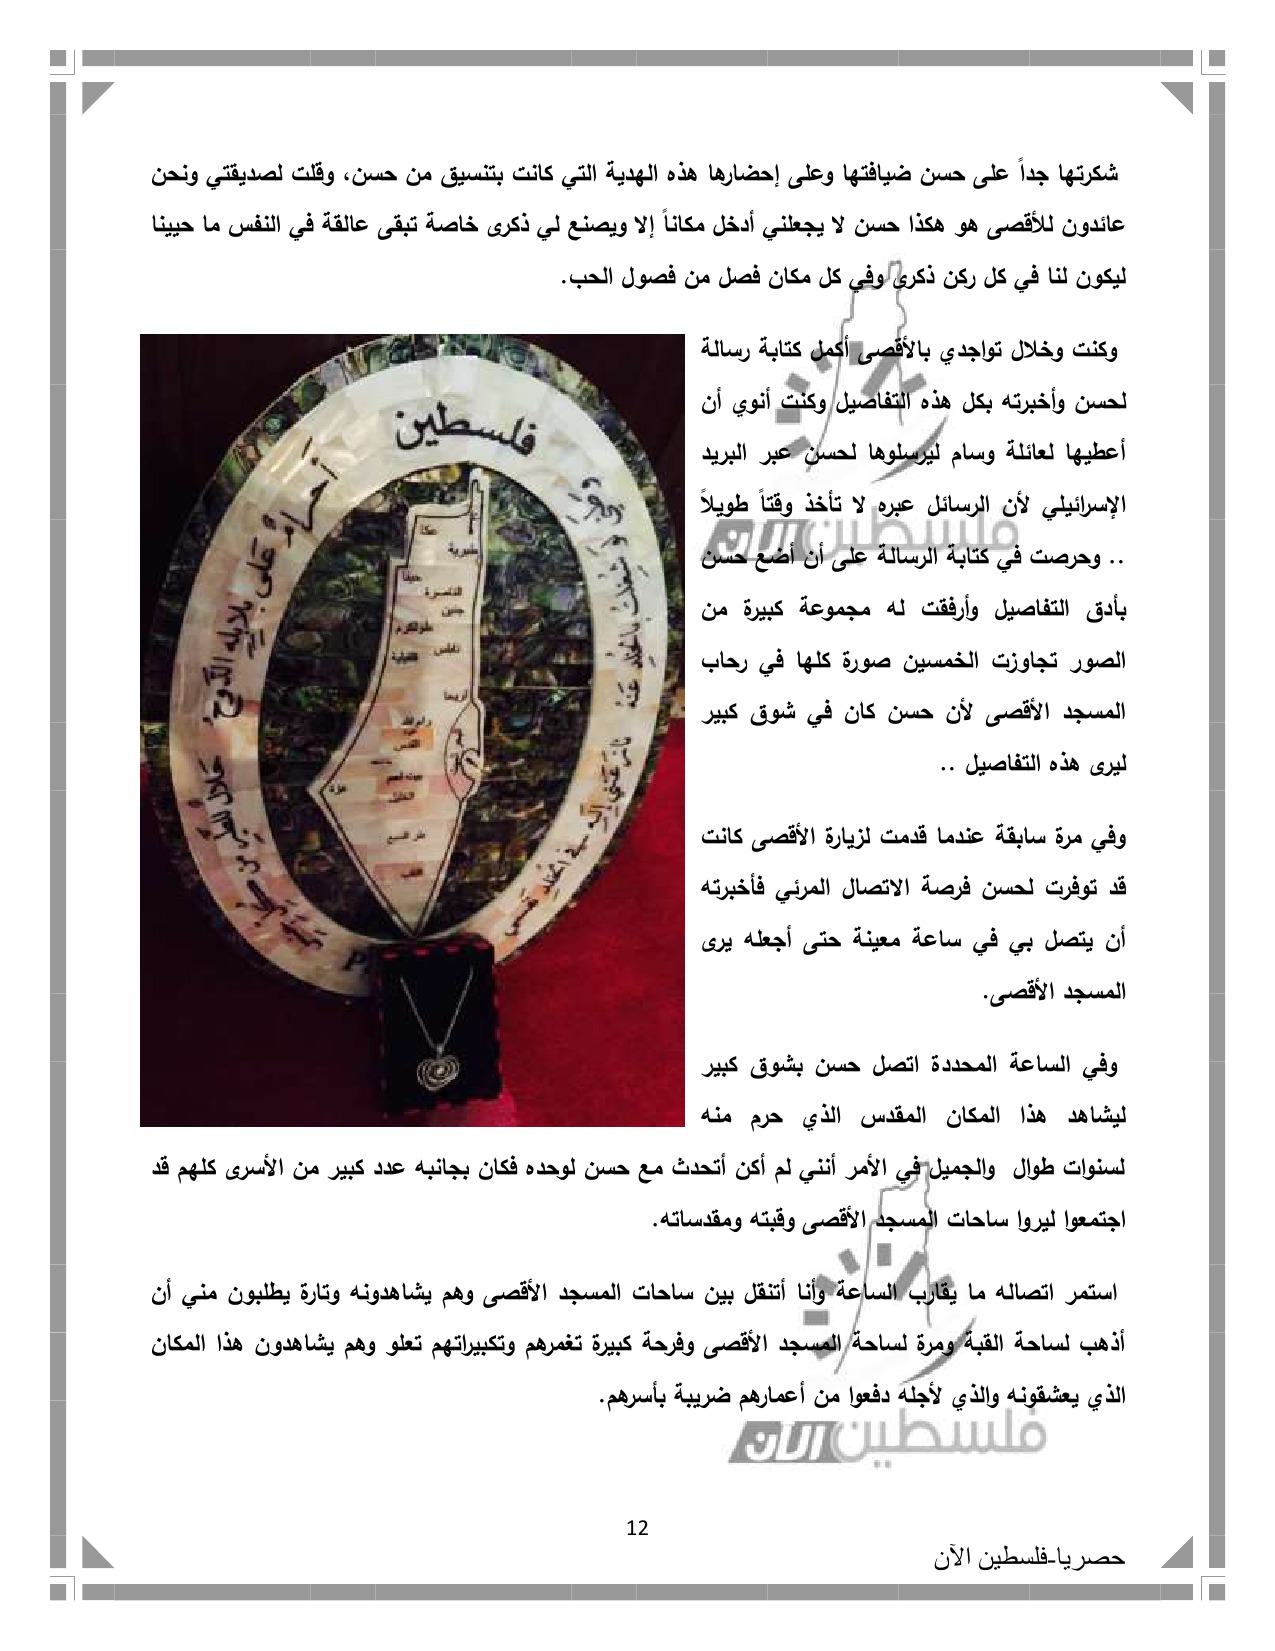 شكرتها جداً على حسن ضيافتها وعلى إحضارها هذه الهدية التي كانت بتنسيق من حسن، وقلت لصديقتي ونحن
عائدون للأقصى هو هكذا حسن لا يجعلني أدخل مكاناً إلا ويصنع لي ذكرى خاصة تبقى عالقة في النفس ما حيينا
ليكون لنا في كل ركن ذكرى وفي كل مكان فصل من فصول الحب.
وكنت وخلال تواجدي بالأقصى أكمل كتابة رسالة
لحسن وأخبرته بكل هذه التفاصيل وكنت أنوي أن
أعطيها لعائلة وسام ليرسلوها لحسن عبر البريد
الإسرائيلي لأن الرسائل عبره لا تأخذ وقتاً طويلاً
.. وحرصت في كتابة الرسالة على أن أضع حسن
بأدق التفاصيل وأرفقت له مجموعة كبيرة من
الصور تجاوزت الخمسين صورة كلها في رحاب
المسجد الأقصى لأن حسن كان في شوق كبير
ليرى هذه التفاصيل ..
وفي مرة سابقة عندما قدمت لزيارة الأقصى كانت
قد توفرت لحسن فرصة الاتصال المرئي فأخبرته
أن يتصل بي في ساعة معينة حتى أجعله يرى
المسجد الأقصى.
وفي الساعة المحددة اتصل حسن بشوق كبير
ليشاهد هذا المكان المقدس الذي حرم منه
لسنوات طوال والجميل في الأمر أنني لم أكن أتحدث مع حسن لوحده فكان بجانبه عدد كبير من الأسرى كلهم قد
اجتمعوا ليروا ساحات المسجد الأقصى وقبته ومقدساته.
استمر اتصاله ما يقارب الساعة وأنا أتنقل بين ساحات المسجد الأقصى وهم يشاهدونه وتارة يطلبون مني أن
أذهب لساحة القبة ومرة لساحة المسجد الأقصى وفرحة كبيرة تغمرهم وتكبيراتهم تعلو وهم يشاهدون هذا المكان
الذي يعشقونه والذي لأجله دفعوا من أعمارهم ضريبة بأسرهم.
فلسطين
أحرام على بلابله الدوح
حلال للطير من كل جنس
عكا
طبرية
حيفا
الناصرة
جنين
طولكرم
نابلس
قلقيلية
أريحا
رام الله
القدس
بيت لحم
الخليل
غزة
بئر السبع
النقب
فلسطين الآن
فلسطين الآن
12
حصريا-فلسطين الآن